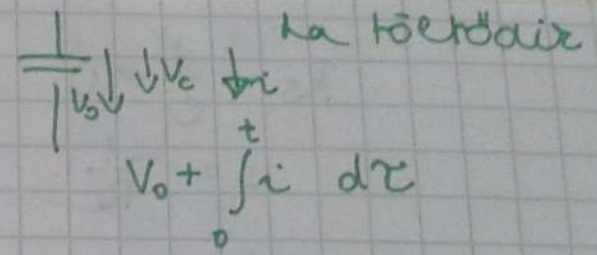 ha töltődik
V₀ V_c i
V₀ + ∫₀ᵗ i dτ